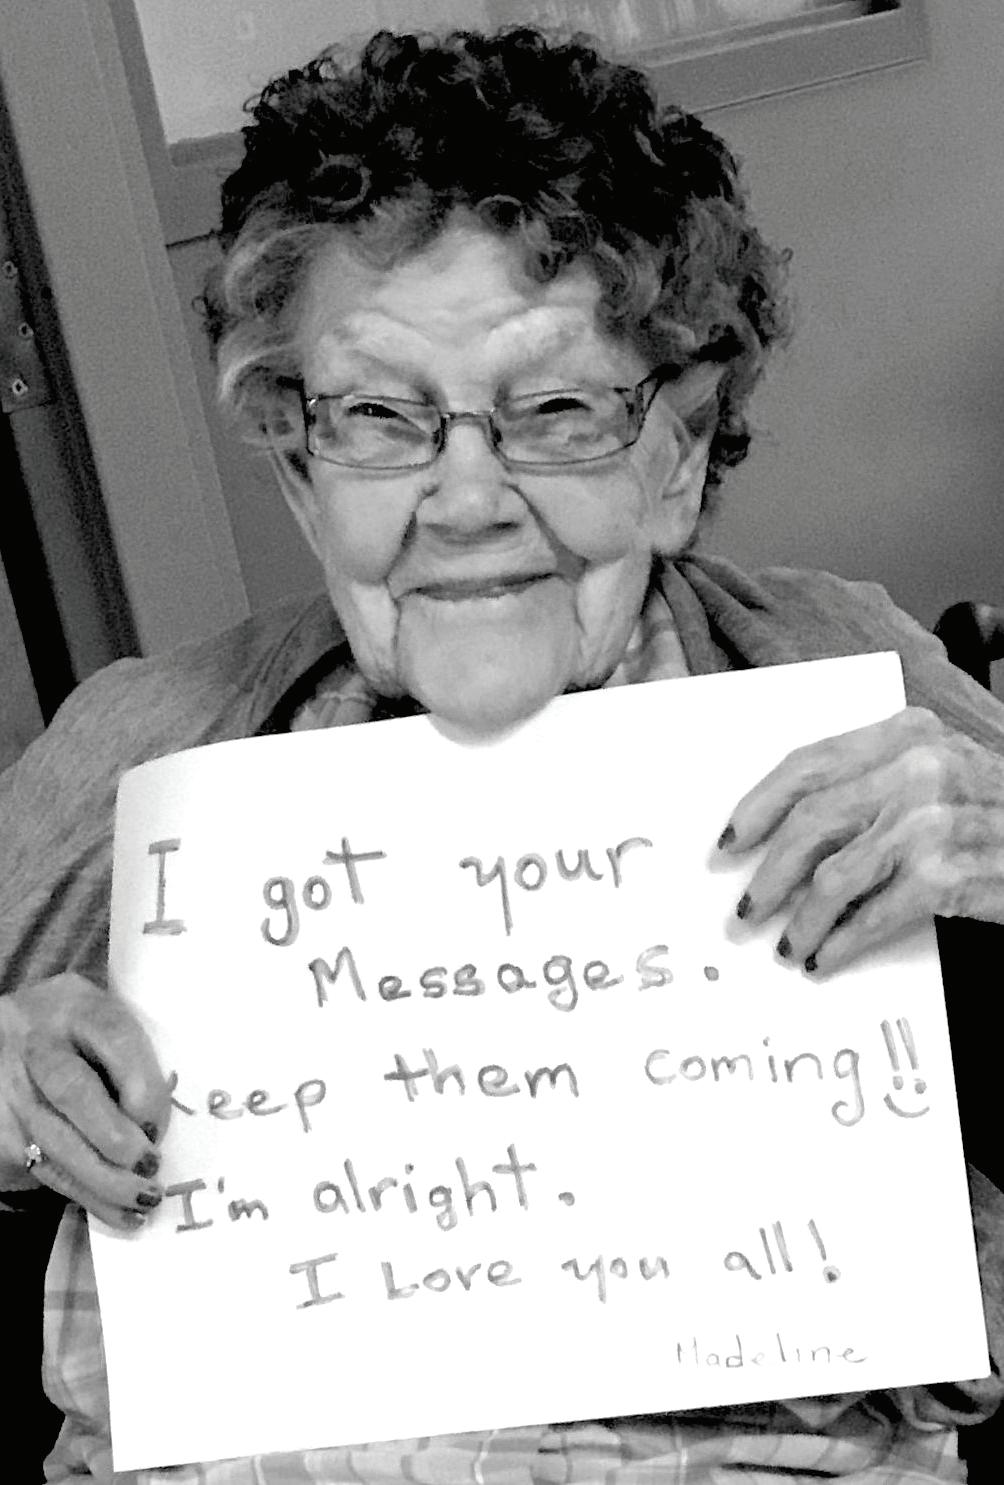 I got your
Messages.
Keep them coming!!
I'm alright.
I Love you all!
Madeline